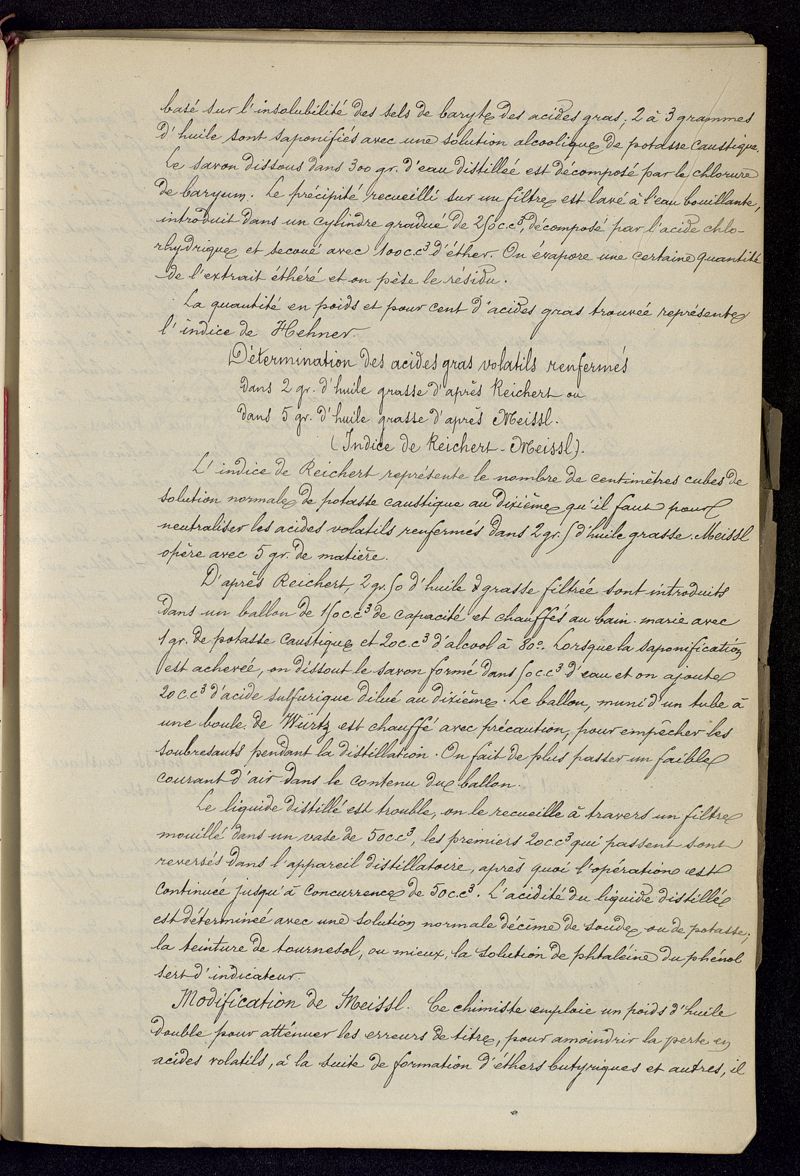 basé sur l'insolubilité des sels de baryte des acides gras; 2 à 3 grammes
d'huile sont saponifiés avec une solution alcoolique de potasse caustique.
Le savon dissous dans 300 gr. d'eau distillée est décomposé par le chlorure
de baryum. Le précipité recueilli sur un filtre est lavé à l'eau bouillante,
introduit dans un cylindre gradué de 250c.c³, décomposé par l'acide chlo-
rhydrique et secoué avec 100c.c³ d'éther. On évapore une certaine quantité
de l'extrait éthéré et on pèse le résidu.
La quantité en poids et pour cent d'acides gras trouvée représente
l'indice de Hehner.
Détermination des acides gras volatils renfermés
dans 2 gr. d'huile grasse d'après Reichert ou
dans 5 gr. d'huile grasse d'après Meissl.
(Indice de Reichert-Meissl).
L'indice de Reichert représente le nombre de centimètres cubes de
solution normale de potasse caustique au dixième qu'il faut pour
neutraliser les acides volatils renfermés dans 2 gr. 5 d'huile grasse. Meissl
opère avec 5 gr. de matière.
D'après Reichert, 2 gr. 50 d'huile grasse filtrée sont introduits
dans un ballon de 150c.c³ de capacité et chauffés au bain-marie avec
1 gr. de potasse caustique et 20c.c³ d'alcool à 80°. Lorsque la saponification
est achevée, on dissout le savon formé dans 50c.c³ d'eau et on ajoute
20c.c³ d'acide sulfurique dilué au dixième. Le ballon, muni d'un tube à
une boule de Würtz est chauffé avec précaution, pour empêcher les
soubresauts pendant la distillation. On fait de plus passer un faible
courant d'air dans le contenu du ballon.
Le liquide distillé est trouble, on le recueille à travers un filtre
mouillé dans un vase de 50c.c³, les premiers 20c.c³ qui passent sont
reversés dans l'appareil distillatoire, après quoi l'opération est
continuée jusqu'à concurrence de 50c.c³. L'acidité du liquide distillé
est déterminée avec une solution normale décime de soude ou de potasse;
la teinture de tournesol, ou mieux, la solution de phtaléine du phénol
sert d'indicateur.
Modification de Meissl. Ce chimiste emploie un poids d'huile
double pour atténuer les erreurs de titre, pour amoindrir la perte en
acides volatils, à la suite de formation d'éthers butyriques et autres, il